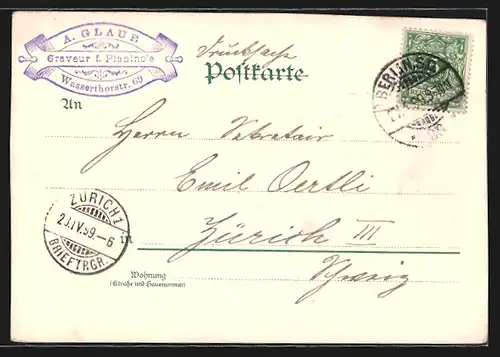 A. GLAUE
Graveur f. Pianino's
Wasserthorstr. 69
Drucksache
Postkarte
BERLIN S.O.
An
Herrn Secretair
Emil Oertli
ZÜRICH 1
23.IV.99.-6
BRIEFTRGR.
in
Zürich III
Schweiz
Wohnung
(Straße und Hausnummer)